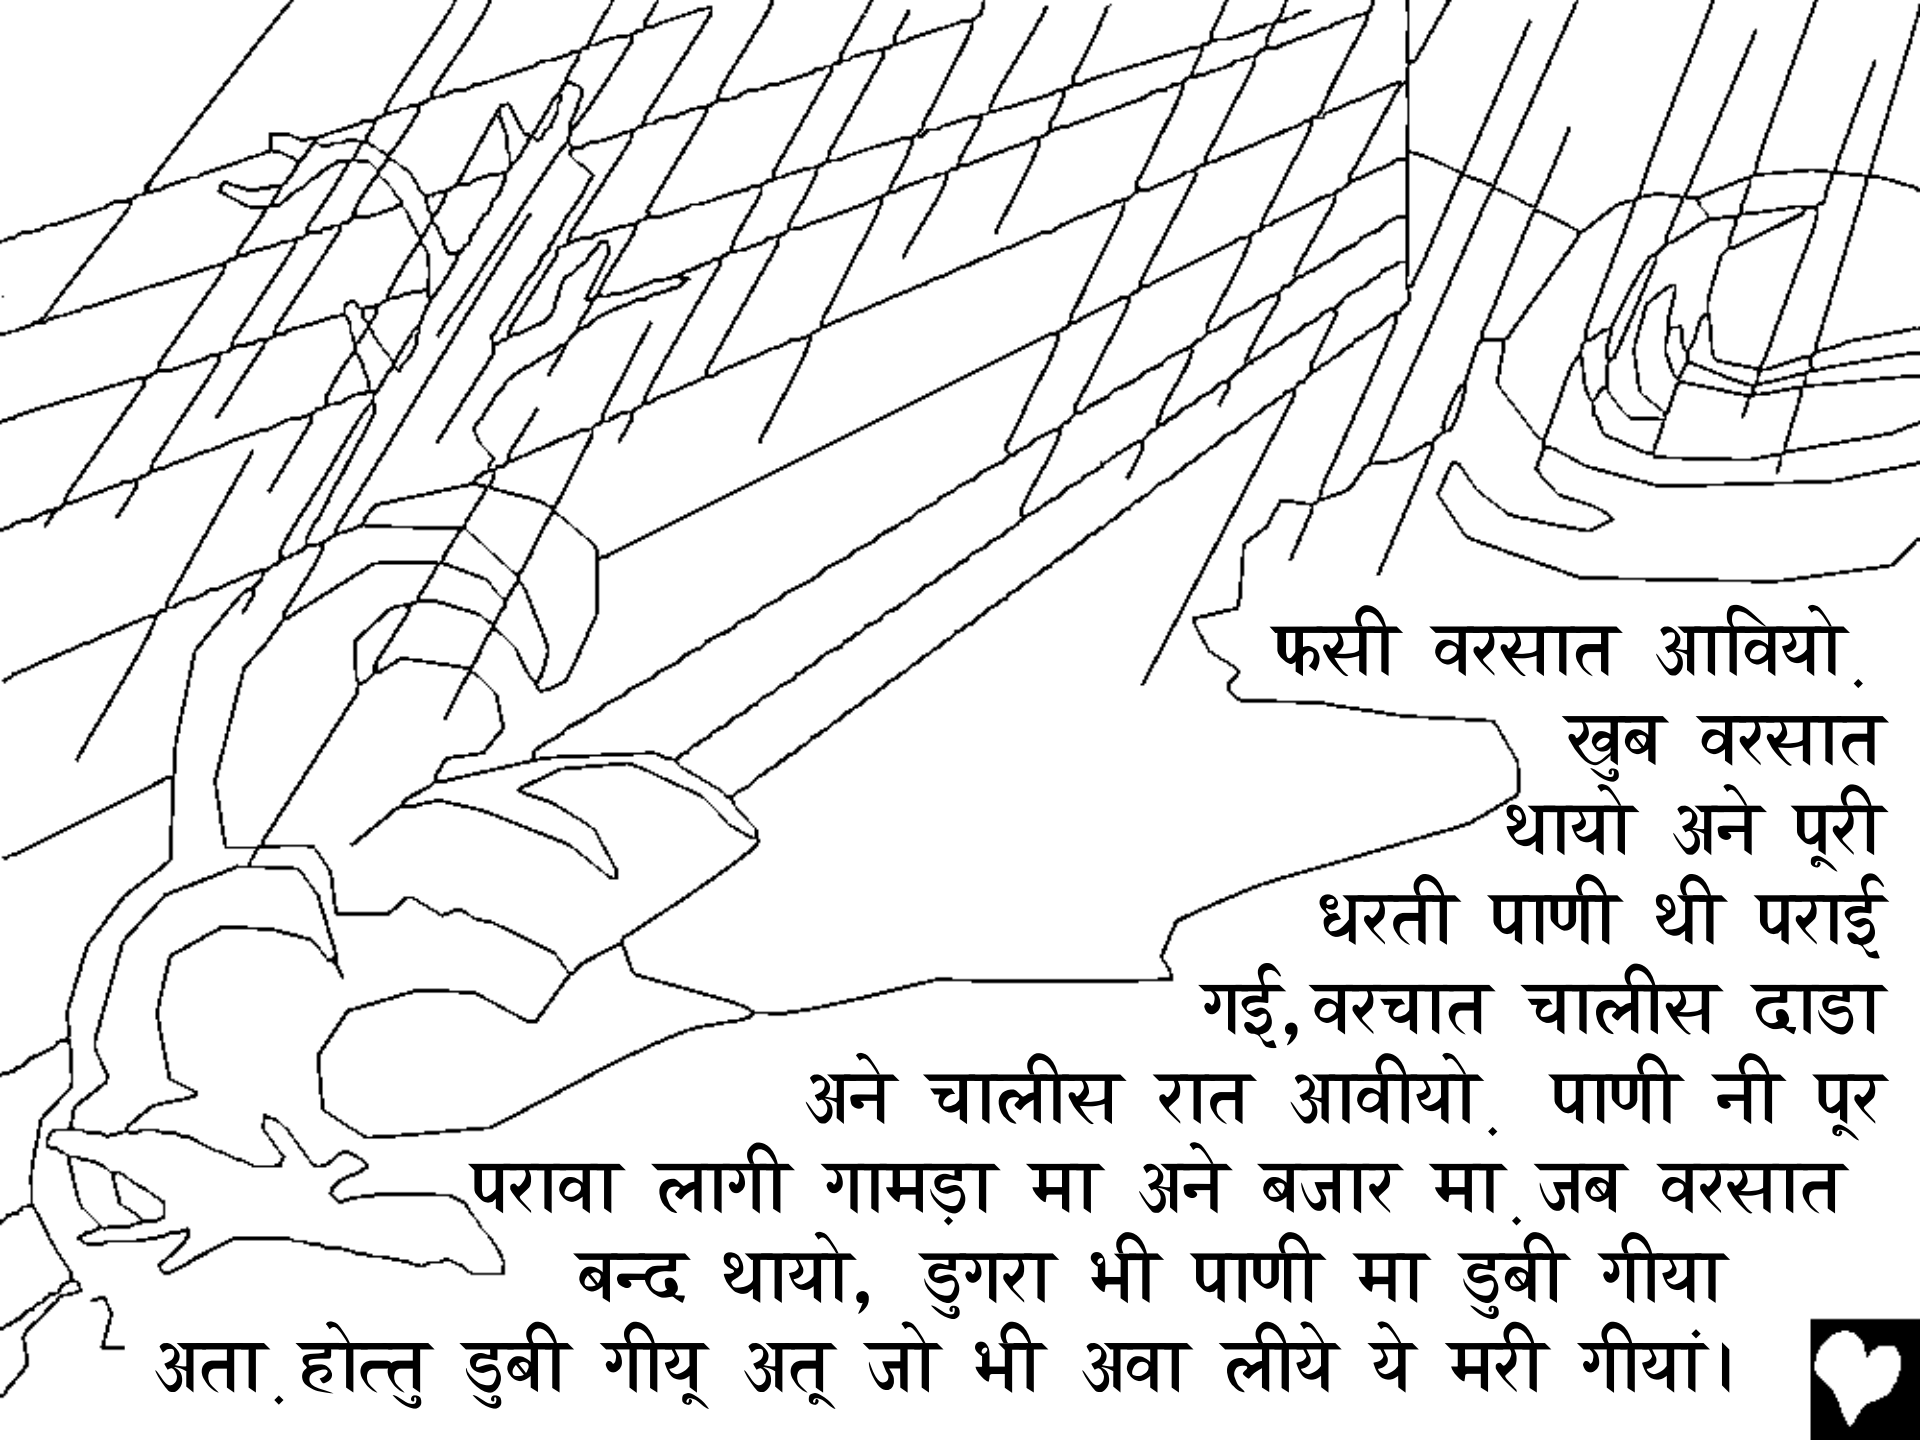 फसी वरसात आवियो.
खुब वरसात
थायो अने पूरी
धरती पाणी थी पराई
गई,वरचात चालीस दाडा
अने चालीस रात आवीयो. पाणी नी पूर
परावा लागी गामड़ा मा अने बजार मा.जब वरसात
बन्द थायो, डुगरा भी पाणी मा डुबी गीया
अता.होत्तु डुबी गीयू अतू जो भी अवा लीये ये मरी गीयां।